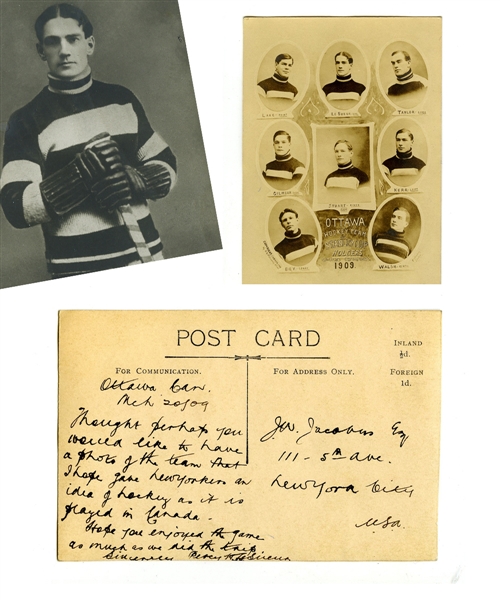 LAKE
LE SUEUR
TAYLOR
GILMOUR
STUART
KERR
OTTAWA
HOCKEY TEAM
1909
WALSH
POST CARD
FOR COMMUNICATION.
FOR ADDRESS ONLY.
INLAND
½d.
FOREIGN
1d.
Ottawa Can.
Mch 20/09
Thought perhaps you
would like to have
a photo of the team that
I hope gave New Yorkers an
idea of hockey as it is
played in Canada.
Hope you enjoyed the game
as much as we did the trip.
Sincerely Percy LeSueur
J.W. Jacobus Esq
111 - 5th Ave.
New York City
USA.